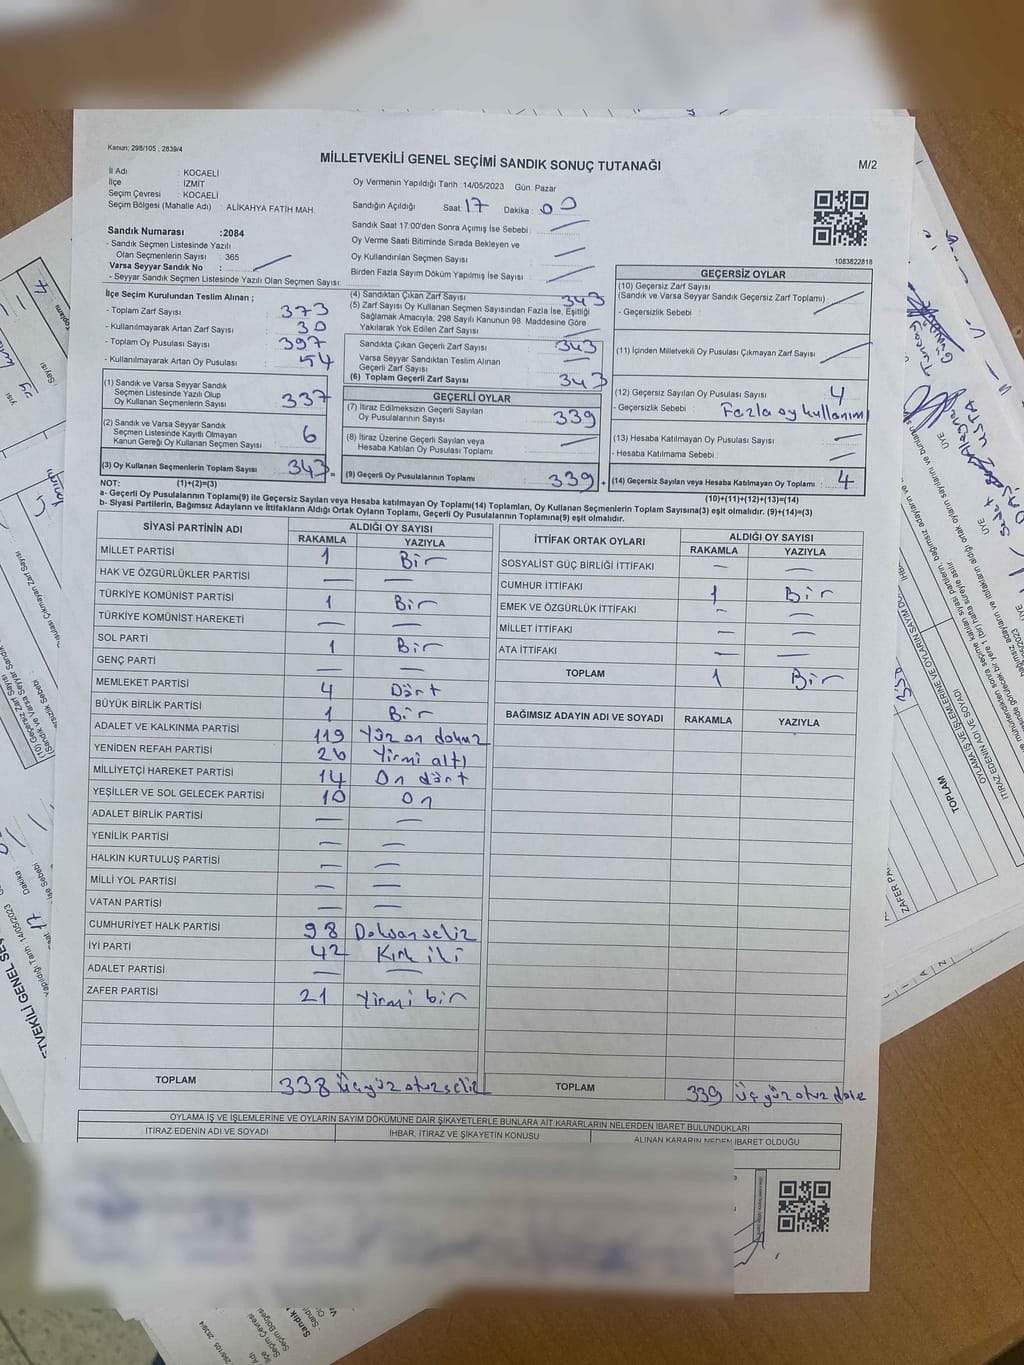 Kanun; 298/105 ; 2839/4
MİLLETVEKİLİ GENEL SEÇİMİ SANDIK SONUÇ TUTANAĞI
M/2
İl Adı : KOCAELİ
İlçe : İZMİT
Seçim Çevresi : KOCAELİ
Seçim Bölgesi (Mahalle Adı) : ALİKAHYA FATİH MAH.
Oy Vermenin Yapıldığı Tarih :14/05/2023 Gün Pazar
Sandığın Açıldığı Saat: 17 Dakika : 00
Sandık Saat 17:00'den Sonra Açımış İse Sebebi :
Oy Verme Saati Bitiminde Sırada Bekleyen ve
Oy Kullandırılan Seçmen Sayısı :
Birden Fazla Sayım Döküm Yapılmış İse Sayısı :
1083822818
Sandık Numarası :2084
- Sandık Seçmen Listesinde Yazılı
Olan Seçmenlerin Sayısı : 365
Varsa Seyyar Sandık No :
- Seyyar Sandık Seçmen Listesinde Yazılı Olan Seçmen Sayısı:
İlçe Seçim Kurulundan Teslim Alınan ;
- Toplam Zarf Sayısı : 373
- Kullanılmayarak Artan Zarf Sayısı : 30
- Toplam Oy Pusulası Sayısı : 397
- Kullanılmayarak Artan Oy Pusulası : 54
(1) Sandık ve Varsa Seyyar Sandık
Seçmen Listesinde Yazılı Olup
Oy Kullanan Seçmenlerin Sayısı : 337
(2) Sandık ve Varsa Seyyar Sandık
Seçmen Listesinde Kayıtlı Olmayan
Kanun Gereği Oy Kullanan Seçmen Sayısı : 6
(3) Oy Kullanan Seçmenlerin Toplam Sayısı : 343 =
(4) Sandıktan Çıkan Zarf Sayısı : 343
(5) Zarf Sayısı Oy Kullanan Seçmen Sayısından Fazla İse, Eşitliği
Sağlamak Amacıyla; 298 Sayılı Kanunun 98. Maddesine Göre
Yakılarak Yok Edilen Zarf Sayısı :
Sandıkta Çıkan Geçerli Zarf Sayısı : 343
Varsa Seyyar Sandıktan Teslim Alınan
Geçerli Zarf Sayısı :
(6) Toplam Geçerli Zarf Sayısı : 343
GEÇERLİ OYLAR
(7) İtiraz Edilmeksizin Geçerli Sayılan
Oy Pusulalarının Sayısı : 339
(8) İtiraz Üzerine Geçerli Sayılan veya
Hesaba Katılan Oy Pusulası Toplamı :
(9) Geçerli Oy Pusulalarının Toplamı : 339 +
GEÇERSİZ OYLAR
(10) Geçersiz Zarf Sayısı
(Sandık ve Varsa Seyyar Sandık Geçersiz Zarf Toplamı) :
- Geçersizlik Sebebi :
(11) İçinden Milletvekili Oy Pusulası Çıkmayan Zarf Sayısı :
(12) Geçersiz Sayılan Oy Pusulası Sayısı : 4
- Geçersizlik Sebebi : Fazla oy kullanımı
(13) Hesaba Katılmayan Oy Pusulası Sayısı :
- Hesaba Katılmama Sebebi :
(14) Geçersiz Sayılan veya Hesaba Katılmayan Oy Toplamı : 4
NOT: (1)+(2)=(3)
(10)+(11)+(12)+(13)=(14)
a- Geçerli Oy Pusulalarının Toplamı(9) ile Geçersiz Sayılan veya Hesaba katılmayan Oy Toplamı(14) Toplamları, Oy Kullanan Seçmenlerin Toplam Sayısına(3) eşit olmalıdır. (9)+(14)=(3)
b- Siyasi Partilerin, Bağımsız Adayların ve İttifakların Aldığı Ortak Oyların Toplamı, Geçerli Oy Pusulalarının Toplamına(9) eşit olmalıdır.
SİYASİ PARTİNİN ADI ALDIĞI OY SAYISI
RAKAMLA YAZIYLA
MİLLET PARTİSİ 1 Bir
HAK VE ÖZGÜRLÜKLER PARTİSİ — —
TÜRKİYE KOMÜNİST PARTİSİ 1 Bir
TÜRKİYE KOMÜNİST HAREKETİ — —
SOL PARTİ 1 Bir
GENÇ PARTİ — —
MEMLEKET PARTİSİ 4 Dört
BÜYÜK BİRLİK PARTİSİ 1 Bir
ADALET VE KALKINMA PARTİSİ 119 Yüz on dokuz
YENİDEN REFAH PARTİSİ 26 Yirmi altı
MİLLİYETÇİ HAREKET PARTİSİ 14 On dört
YEŞİLLER VE SOL GELECEK PARTİSİ 10 On
ADALET BİRLİK PARTİSİ — —
YENİLİK PARTİSİ — —
HALKIN KURTULUŞ PARTİSİ — —
MİLLİ YOL PARTİSİ — —
VATAN PARTİSİ — —
CUMHURİYET HALK PARTİSİ 98 Doksan sekiz
İYİ PARTİ 42 Kırk iki
ADALET PARTİSİ — —
ZAFER PARTİSİ 21 Yirmi bir
TOPLAM 338 Üçyüz otuz sekiz
İTTİFAK ORTAK OYLARI ALDIĞI OY SAYISI
RAKAMLA YAZIYLA
SOSYALİST GÜÇ BİRLİĞİ İTTİFAKI — —
CUMHUR İTTİFAKI 1 Bir
EMEK VE ÖZGÜRLÜK İTTİFAKI — —
MİLLET İTTİFAKI — —
ATA İTTİFAKI — —
TOPLAM 1 Bir
BAĞIMSIZ ADAYIN ADI VE SOYADI RAKAMLA YAZIYLA
TOPLAM 339 üç yüz otuz dokuz
OYLAMA İŞ VE İŞLEMLERİNE VE OYLARIN SAYIM DÖKÜMÜNE DAİR ŞİKAYETLERLE BUNLARA AİT KARARLARIN NELERDEN İBARET BULUNDUKLARI
İTİRAZ EDENİN ADI VE SOYADI İHBAR, İTİRAZ VE ŞİKAYETİN KONUSU ALINAN KARARIN NEDEN İBARET OLDUĞU